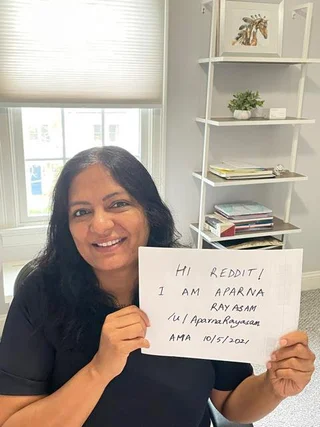 HI REDDIT!
I AM APARNA
RAYASAM
/u/AparnaRayasam
AMA 10/5/2021